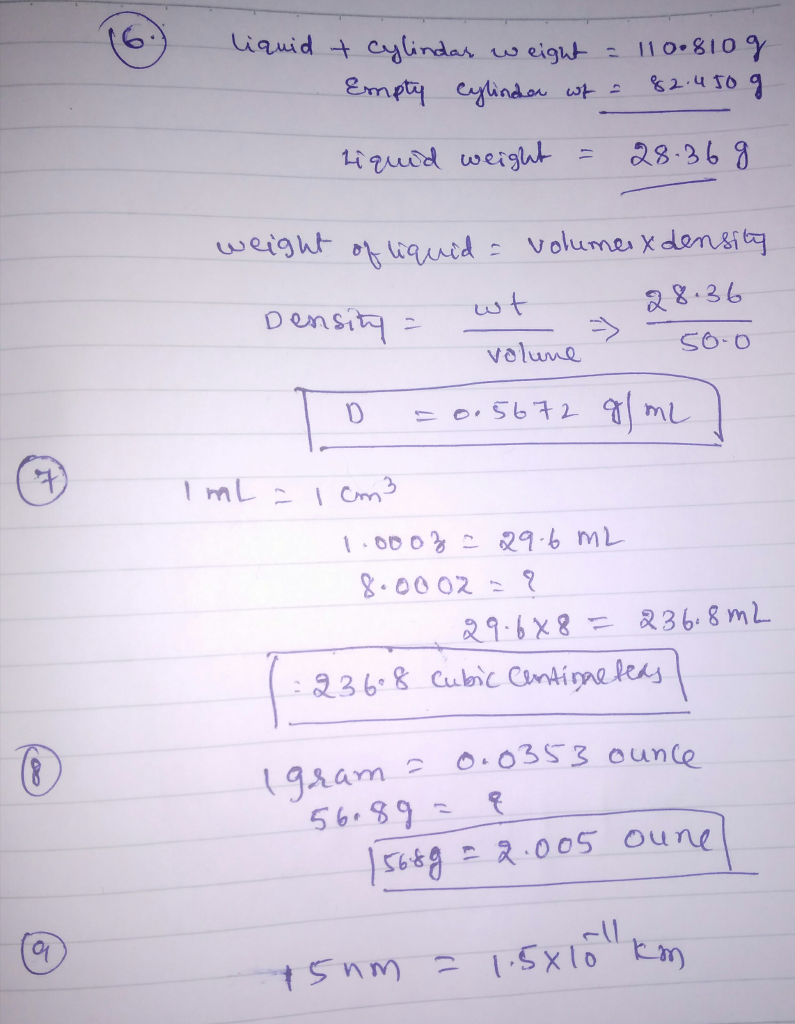 16.
liquid + cylindar weight = 110.810 g
Empty cylinder wt = 82.450 g
Liquid weight = 28.36 g
weight of liquid = volumes x density
Density = wt / volume ⇒ 28.36 / 50.0
D = 0.5672 g/mL
7
1 mL = 1 cm³
1.00 oz = 29.6 mL
8.00 oz = ?
29.6 x 8 = 236.8 mL
= 236.8 cubic centimeters
8
1 gram = 0.0353 ounce
56.8g = ?
56.8g = 2.005 oune
9
15 nm = 1.5 x 10⁻¹¹ km